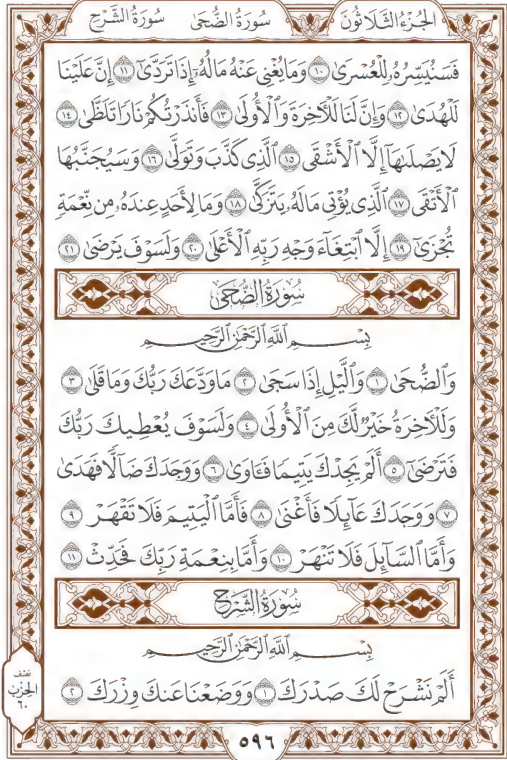 سُورَةُ الشَّرْحِ سُورَةُ الضُّحَىٰ الجُزْءُ الثَّلَاثُونَ
فَسَنُيَسِّرُهُۥ لِلْعُسْرَىٰ ١٠ وَمَا يُغْنِى عَنْهُ مَالُهُۥٓ إِذَا تَرَدَّىٰٓ ١١ إِنَّ عَلَيْنَا
لَلْهُدَىٰ ١٢ وَإِنَّ لَنَا لَلْـَٔاخِرَةَ وَٱلْأُولَىٰ ١٣ فَأَنذَرْتُكُمْ نَارًا تَلَظَّىٰ ١٤
لَا يَصْلَىٰهَآ إِلَّا ٱلْأَشْقَى ١٥ ٱلَّذِى كَذَّبَ وَتَوَلَّىٰ ١٦ وَسَيُجَنَّبُهَا
ٱلْأَتْقَى ١٧ ٱلَّذِى يُؤْتِى مَالَهُۥ يَتَزَكَّىٰ ١٨ وَمَا لِأَحَدٍ عِندَهُۥ مِن نِّعْمَةٍ
تُجْزَىٰٓ ١٩ إِلَّا ٱبْتِغَآءَ وَجْهِ رَبِّهِ ٱلْأَعْلَىٰ ٢٠ وَلَسَوْفَ يَرْضَىٰ ٢١
سُورَةُ الضُّحَىٰ
بِسْمِ ٱللَّهِ ٱلرَّحْمَٰنِ ٱلرَّحِيمِ
وَٱلضُّحَىٰ ١ وَٱلَّيْلِ إِذَا سَجَىٰ ٢ مَا وَدَّعَكَ رَبُّكَ وَمَا قَلَىٰ ٣
وَلَلْـَٔاخِرَةُ خَيْرٌ لَّكَ مِنَ ٱلْأُولَىٰ ٤ وَلَسَوْفَ يُعْطِيكَ رَبُّكَ
فَتَرْضَىٰٓ ٥ أَلَمْ يَجِدْكَ يَتِيمًا فَـَٔاوَىٰ ٦ وَوَجَدَكَ ضَآلًّا فَهَدَىٰ
٧ وَوَجَدَكَ عَآئِلًا فَأَغْنَىٰ ٨ فَأَمَّا ٱلْيَتِيمَ فَلَا تَقْهَرْ ٩
وَأَمَّا ٱلسَّآئِلَ فَلَا تَنْهَرْ ١٠ وَأَمَّا بِنِعْمَةِ رَبِّكَ فَحَدِّثْ ١١
سُورَةُ الشَّرْحِ
بِسْمِ ٱللَّهِ ٱلرَّحْمَٰنِ ٱلرَّحِيمِ
أَلَمْ نَشْرَحْ لَكَ صَدْرَكَ ١ وَوَضَعْنَا عَنكَ وِزْرَكَ ٢
نصف
الحزب
٦٠
٥٩٦